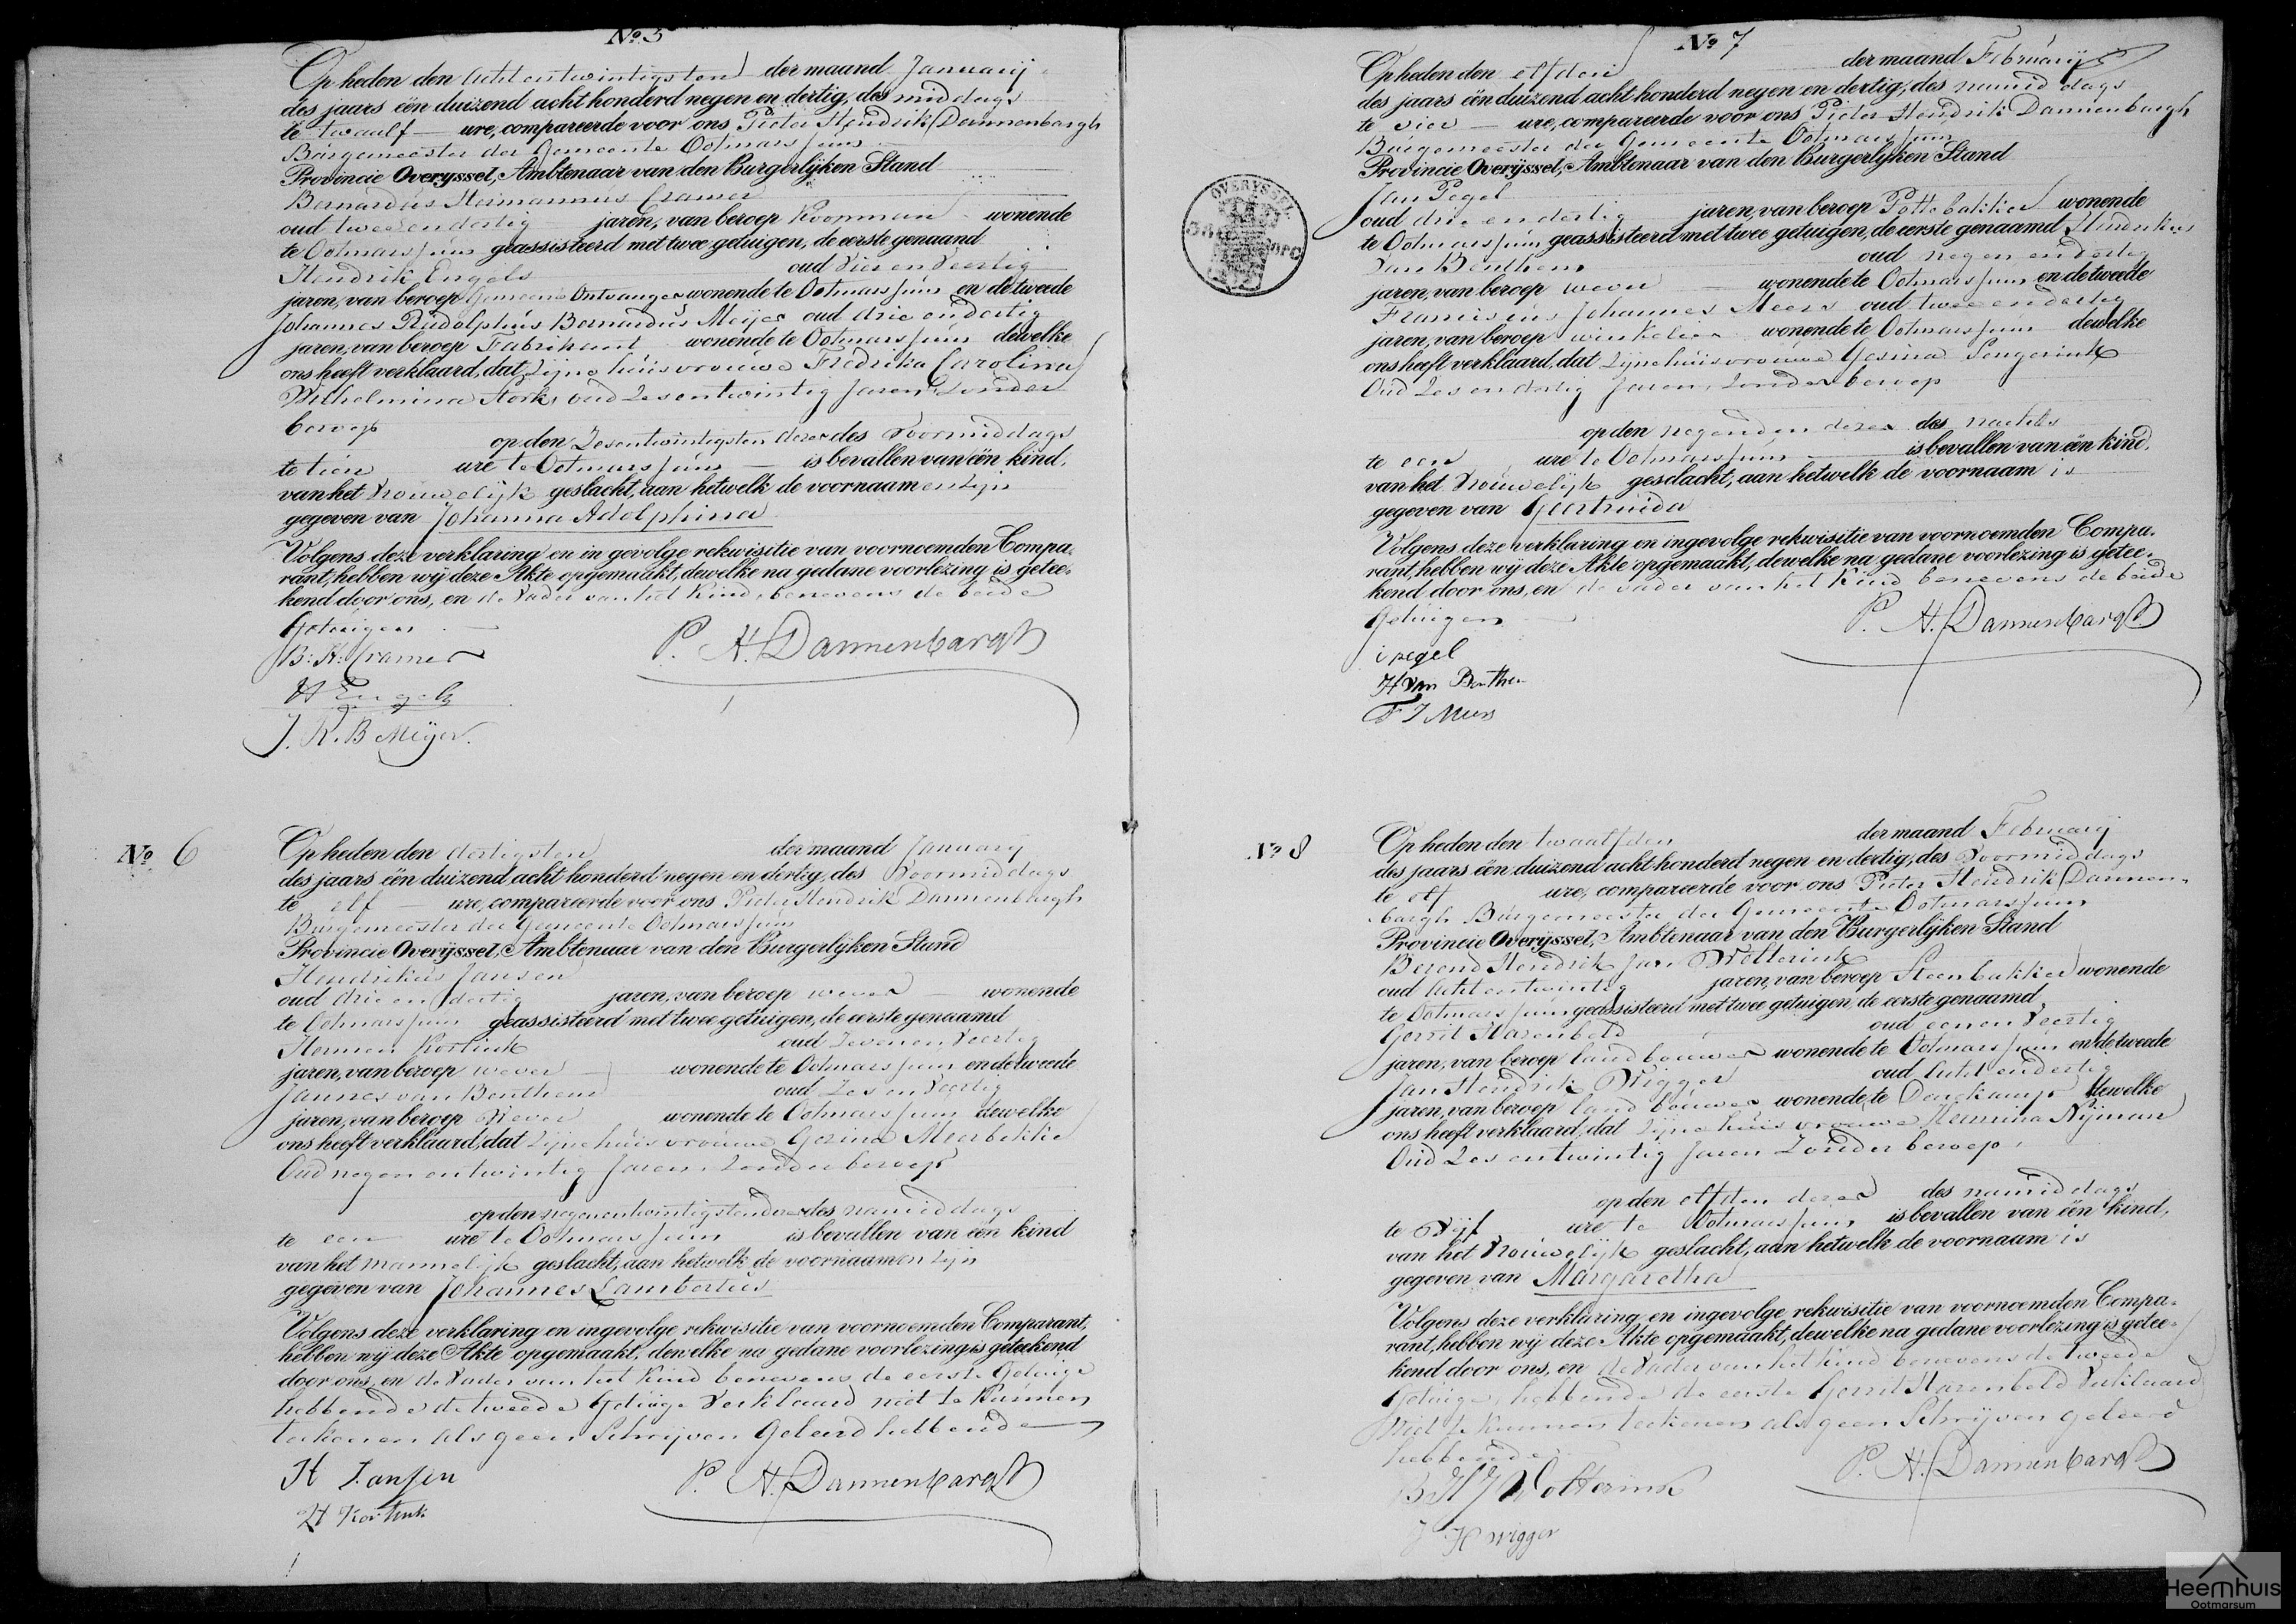 No 5
Op heden den achtentwintigsten der maand Januarij
des jaars één duizend acht honderd negen en dertig, des middags
te twaalf ure, compareerde voor ons Pieter Hendrik Dannenbargh
Burgemeester der Gemeente Ootmarssum
Provincie Overyssel, Ambtenaar van den Burgerlijken Stand
Bernardus Hermannus Cramer
oud twee en dertig jaren, van beroep Koopman wonende
te Ootmarssum geassisteerd met twee getuigen, de eerste genaamd
Hendrik Engels oud Vier en Veertig
jaren, van beroep Gemeente Ontvanger wonende te Ootmarssum en de tweede
Johannes Rudolphus Bernardus Meijer oud drie en dertig
jaren, van beroep Fabrikant wonende te Ootmarssum dewelke
ons heeft verklaard, dat zijne huisvrouwe Fredrika Carolina
Wilhelmina Stork, oud Zesentwintig Jaren, Zonder
beroep
op den Zesentwintigsten dezer des Voormiddags
te tien ure te Ootmarssum is bevallen van één kind,
van het Vrouwelijk geslacht, aan hetwelk de voornaamen zijn
gegeven van Johanna Adolphina
Volgens deze verklaring en in gevolge rekwisitie van voornoemden Compa-
rant, hebben wij deze Akte opgemaakt, dewelke na gedane voorlezing is getee-
kend door ons, en de Vader van het Kind, benevens de beide
Getuigen
B: H: Cramer
P. H. Dannenbargh
H Engels
J. R. B Meijer.
No 6
Op heden den dertigsten der maand Januarij
des jaars één duizend acht honderd negen en dertig, des Voormiddags
te elf ure, compareerde voor ons Pieter Hendrik Dannenbargh
Burgemeester der Gemeente Ootmarssum
Provincie Overyssel, Ambtenaar van den Burgerlijken Stand
Hendrikus Jansen
oud drie en dertig jaren, van beroep wever wonende
te Ootmarssum geassisteerd met twee getuigen, de eerste genaamd
Hermen Kortink oud Zeven en Veertig
jaren, van beroep wever wonende te Ootmarssum en de tweede
Jannes van Benthem oud Zes en Veertig
jaren, van beroep Wever wonende te Ootmarssum dewelke
ons heeft verklaard, dat zijne huisvrouwe Gezina Meerbekke
Oud negen entwintig Jaren, Zonder beroep
op den negenentwintigsten dezer des namiddags
te een ure te Ootmarssum is bevallen van één kind
van het mannelijk geslacht, aan hetwelk de voornaamen zijn
gegeven van Johannes Lambertus
Volgens deze verklaring en ingevolge rekwisitie van voornoemden Comparant,
hebben wij deze Akte opgemaakt, dewelke na gedane voorlezing is geteekend
door ons, en de Vader van het Kind benevens de eerste Getuige
hebbende de tweede Getuige Verklaard niet te Kunnen
teekenen als geen Schrijven Geleerd hebbende
H Jansen
P. H. Dannenbargh
H Kortink
No 7
Op heden den elfden der maand Februarij
des jaars één duizend acht honderd negen en dertig, des namiddags
te vier ure, compareerde voor ons Pieter Hendrik Dannenbargh
Burgemeester der Gemeente Ootmarssum
Provincie Overyssel, Ambtenaar van den Burgerlijken Stand
Jan Pegel
oud drie en dertig jaren, van beroep Pottebakker wonende
te Ootmarssum geassisteerd met twee getuigen, de eerste genaamd Hendrikus
Van Benthem oud negen en dertig
jaren, van beroep wever wonende te Ootmarssum en de tweede
Franciscus Johannes Meers oud twee en dertig
jaren, van beroep winkelier wonende te Ootmarssum dewelke
ons heeft verklaard, dat Zijne huisvrouwe Gesina Sengerink
Oud Zes en dertig Jaren, Zonder beroep
op den negenden dezer des nachts
te een ure te Ootmarssum is bevallen van één kind,
van het Vrouwelijk geslacht, aan hetwelk de voornaam is
gegeven van Geertruida
Volgens deze verklaring en ingevolge rekwisitie van voornoemden Compa-
rant, hebben wij deze Akte opgemaakt, dewelke na gedane voorlezing is getee-
kend door ons, en de vader van het Kind benevens de beide
Getuigen
P. H. Dannenbargh
i pegel
H van Benthem
F J Meers
OVERYSSEL
No 8
Op heden den twaalfden der maand Februarij
des jaars één duizend acht honderd negen en dertig, des Voormiddags
te elf ure, compareerde voor ons Pieter Hendrik Dannen-
bargh Burgemeester der Gemeente Ootmarssum
Provincie Overyssel, Ambtenaar van den Burgerlijken Stand
Berend Hendrik Jan Wolterink
oud Achtentwintig jaren, van beroep Steenbakker wonende
te Ootmarssum geassisteerd met twee getuigen, de eerste genaamd
Gerrit Harenbeld oud een en Veertig
jaren, van beroep landbouwer wonende te Ootmarssum en de tweede
Jan Hendrik Wigger oud Acht en dertig
jaren, van beroep landbouwer wonende te Denekamp dewelke
ons heeft verklaard, dat Zijne huisvrouwe Hermina Nijman
Oud Zes entwintig Jaren Zonder beroep,
op den elfden dezer des namiddags
te Vijf ure te Ootmarssum is bevallen van één kind,
van het Vrouwelijk geslacht, aan hetwelk de voornaam is
gegeven van Margaretha
Volgens deze verklaring en ingevolge rekwisitie van voornoemden Compa-
rant, hebben wij deze Akte opgemaakt, dewelke na gedane voorlezing is getee-
kend door ons, en de Vader van het kind benevens de tweede
Getuige, hebbende de eerste Gerrit Harenbeld Verklaard
Niet te kunnen teekenen als geen Schrijven geleerd
hebbende
P. H. Dannenbargh
B H J Wolterink
J H Wigger
Heemhuis
Ootmarsum